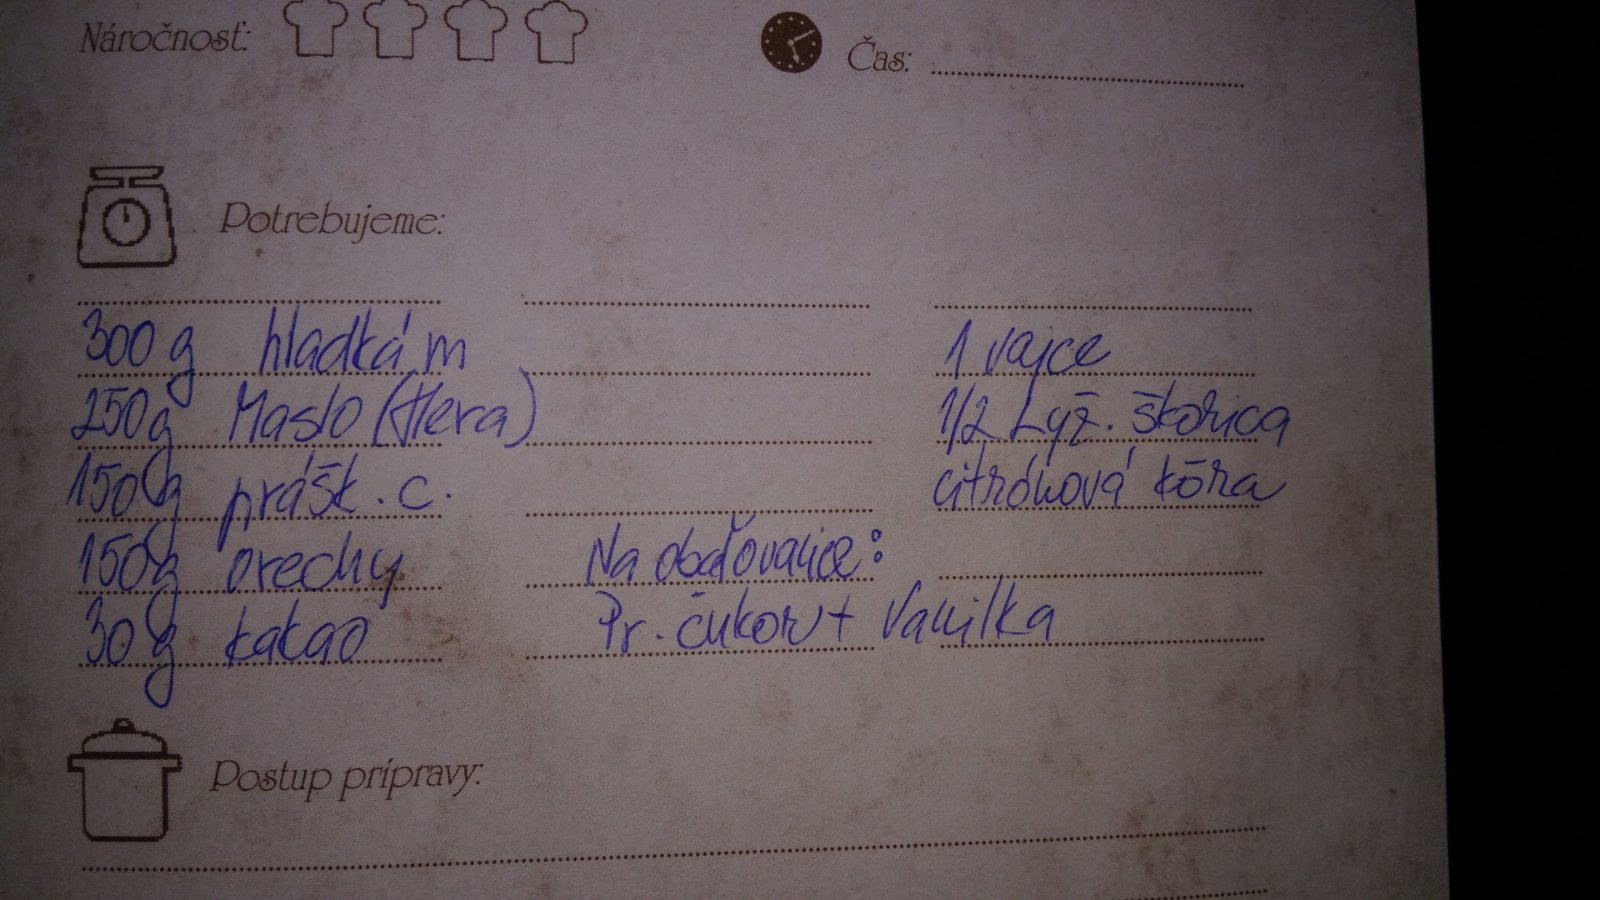 Náročnosť:
Čas:
Potrebujeme:
300 g hladká m
250g Maslo (Hera)
150g prášk. c.
150g orechy
30g kakao
1 vajce
1/2 Lyž. škorica
citrónová kôra
Na obaľovanie:
Pr. cukor + Vanilka
Postup prípravy: